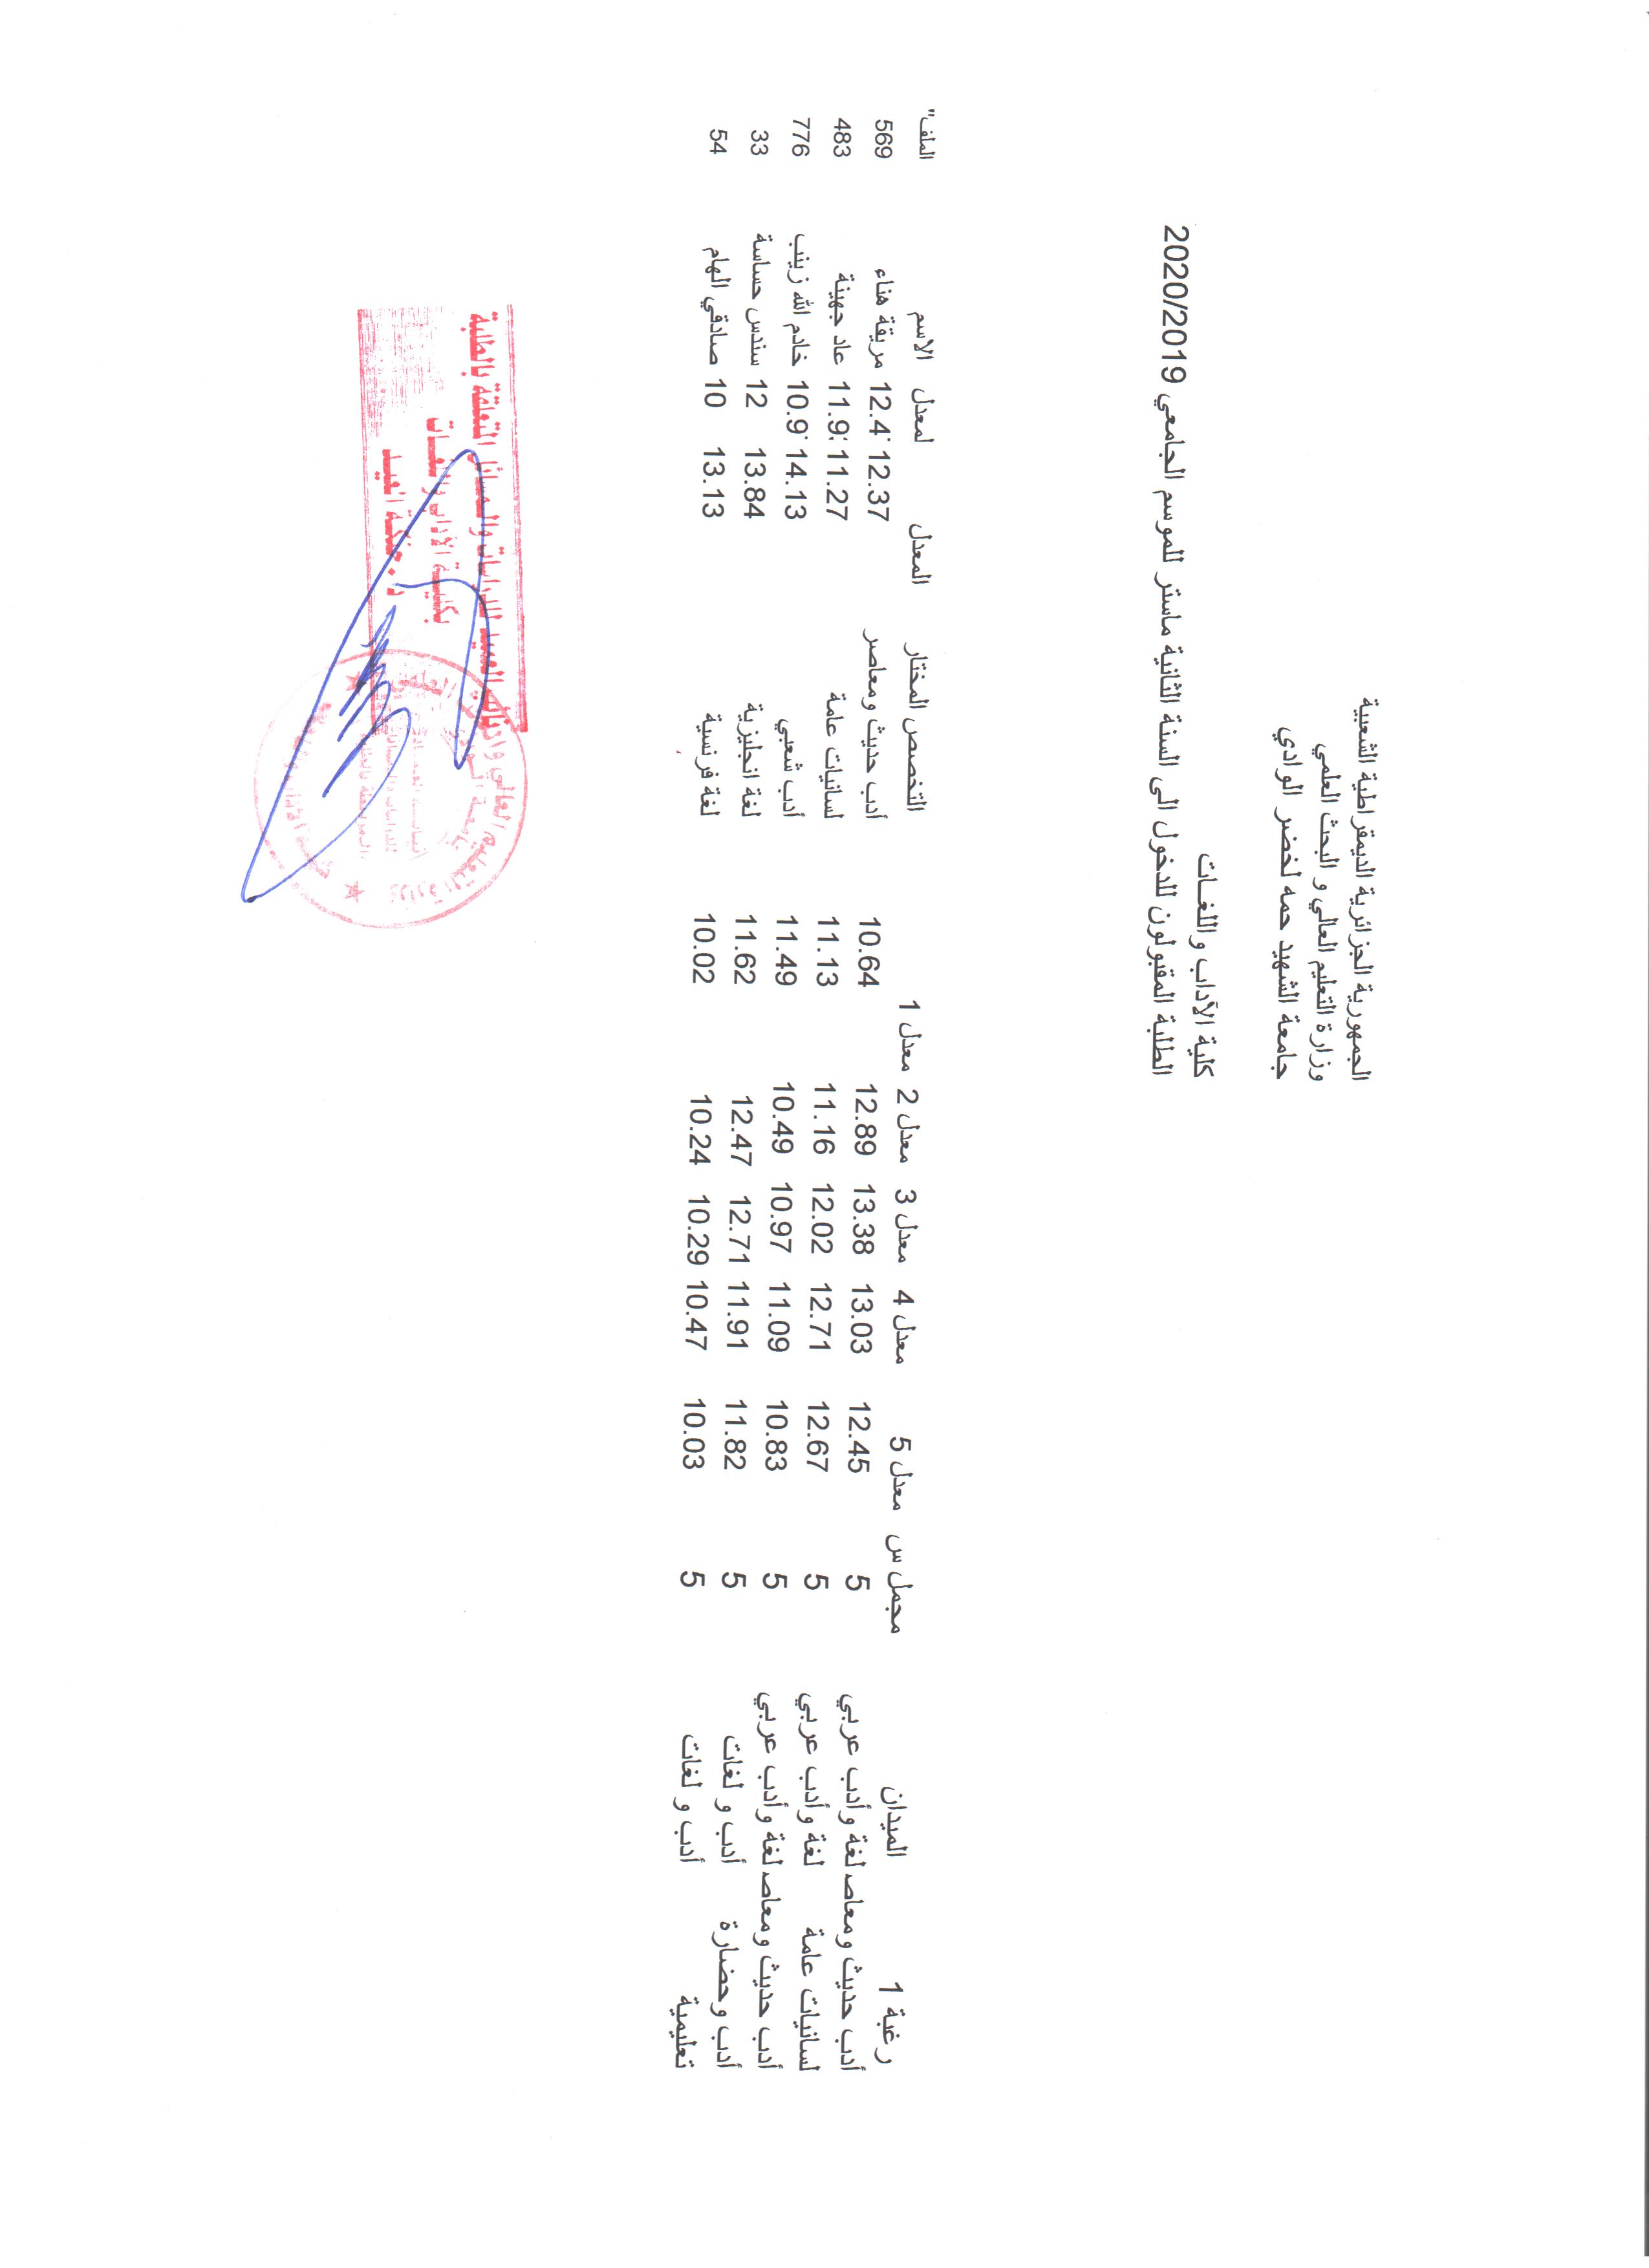 الجمهورية الجزائرية الديمقراطية الشعبية
وزارة التعليم العالي و البحث العلمي
جامعة الشهيد حمه لخضر الوادي
كلية الآداب واللغـات
الطلبة المقبولون للدخول الى السنة الثانية ماستر للموسم الجامعي 2020/2019
الملف" الاسم لمعدل المعدل التخصص المختار معدل 1 معدل 2 معدل 3 معدل 4 معدل 5 مجمل س الميدان رغبة 1
569 مريقة هناء 12.4 12.37 أدب حديث ومعاصر 10.64 12.89 13.38 13.03 12.45 5 لغة وأدب عربي أدب حديث ومعاصد
483 عاد جهينة 11.9 11.27 لسانيات عامة 11.13 11.16 12.02 12.71 12.67 5 لغة وأدب عربي لسانيات عامة
776 خادم الله زينب 10.9 14.13 أدب شعبي 11.49 10.49 10.97 11.09 10.83 5 لغة وأدب عربي أدب حديث ومعاصد
33 سندس حساسة 12 13.84 لغة انجليزية 11.62 12.47 12.71 11.91 11.82 5 أدب و لغات أدب وحضارة
54 صادقي الهام 10 13.13 لغة فرنسية 10.02 10.24 10.29 10.47 10.03 5 أدب و لغات تعليمية
العميد للدراسات والمسائل المتعلقة بالطلبة
بكلية الآداب واللغات